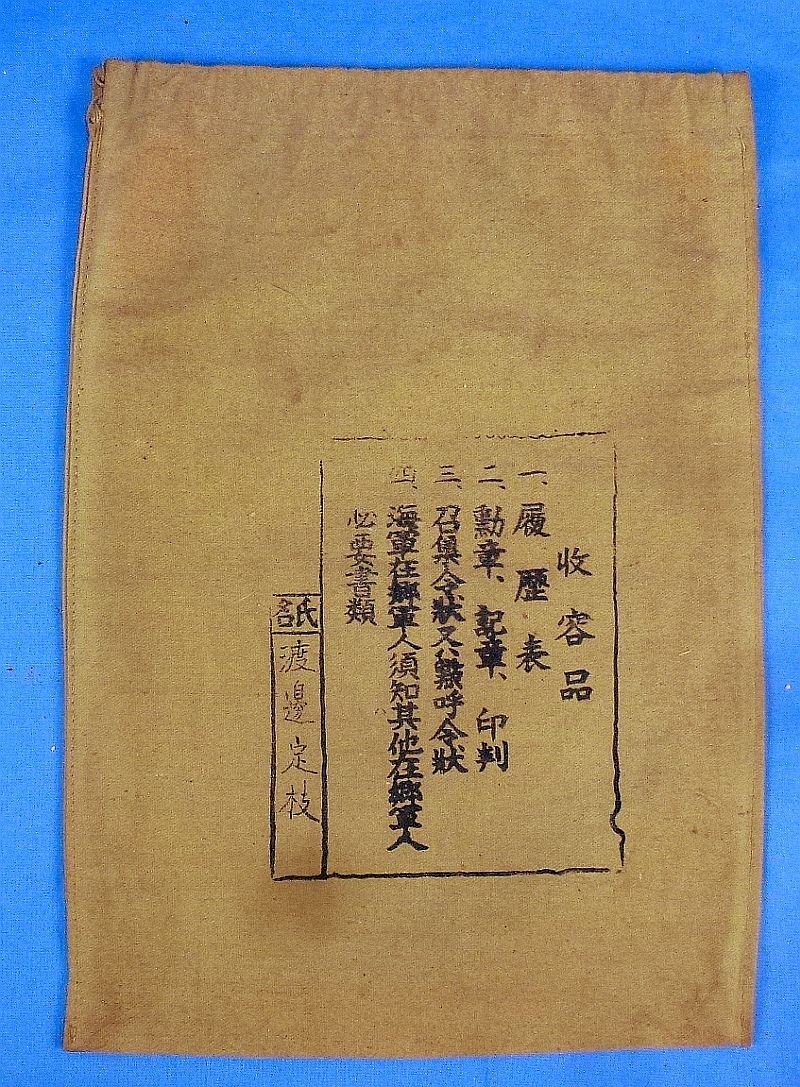 收容品
一、履歷表
二、勳章、記章、印判
三、召集令狀又ハ點呼令狀
四、海軍在鄕軍人須知其他在鄕軍人
必要書類
氏名
渡邊定枝